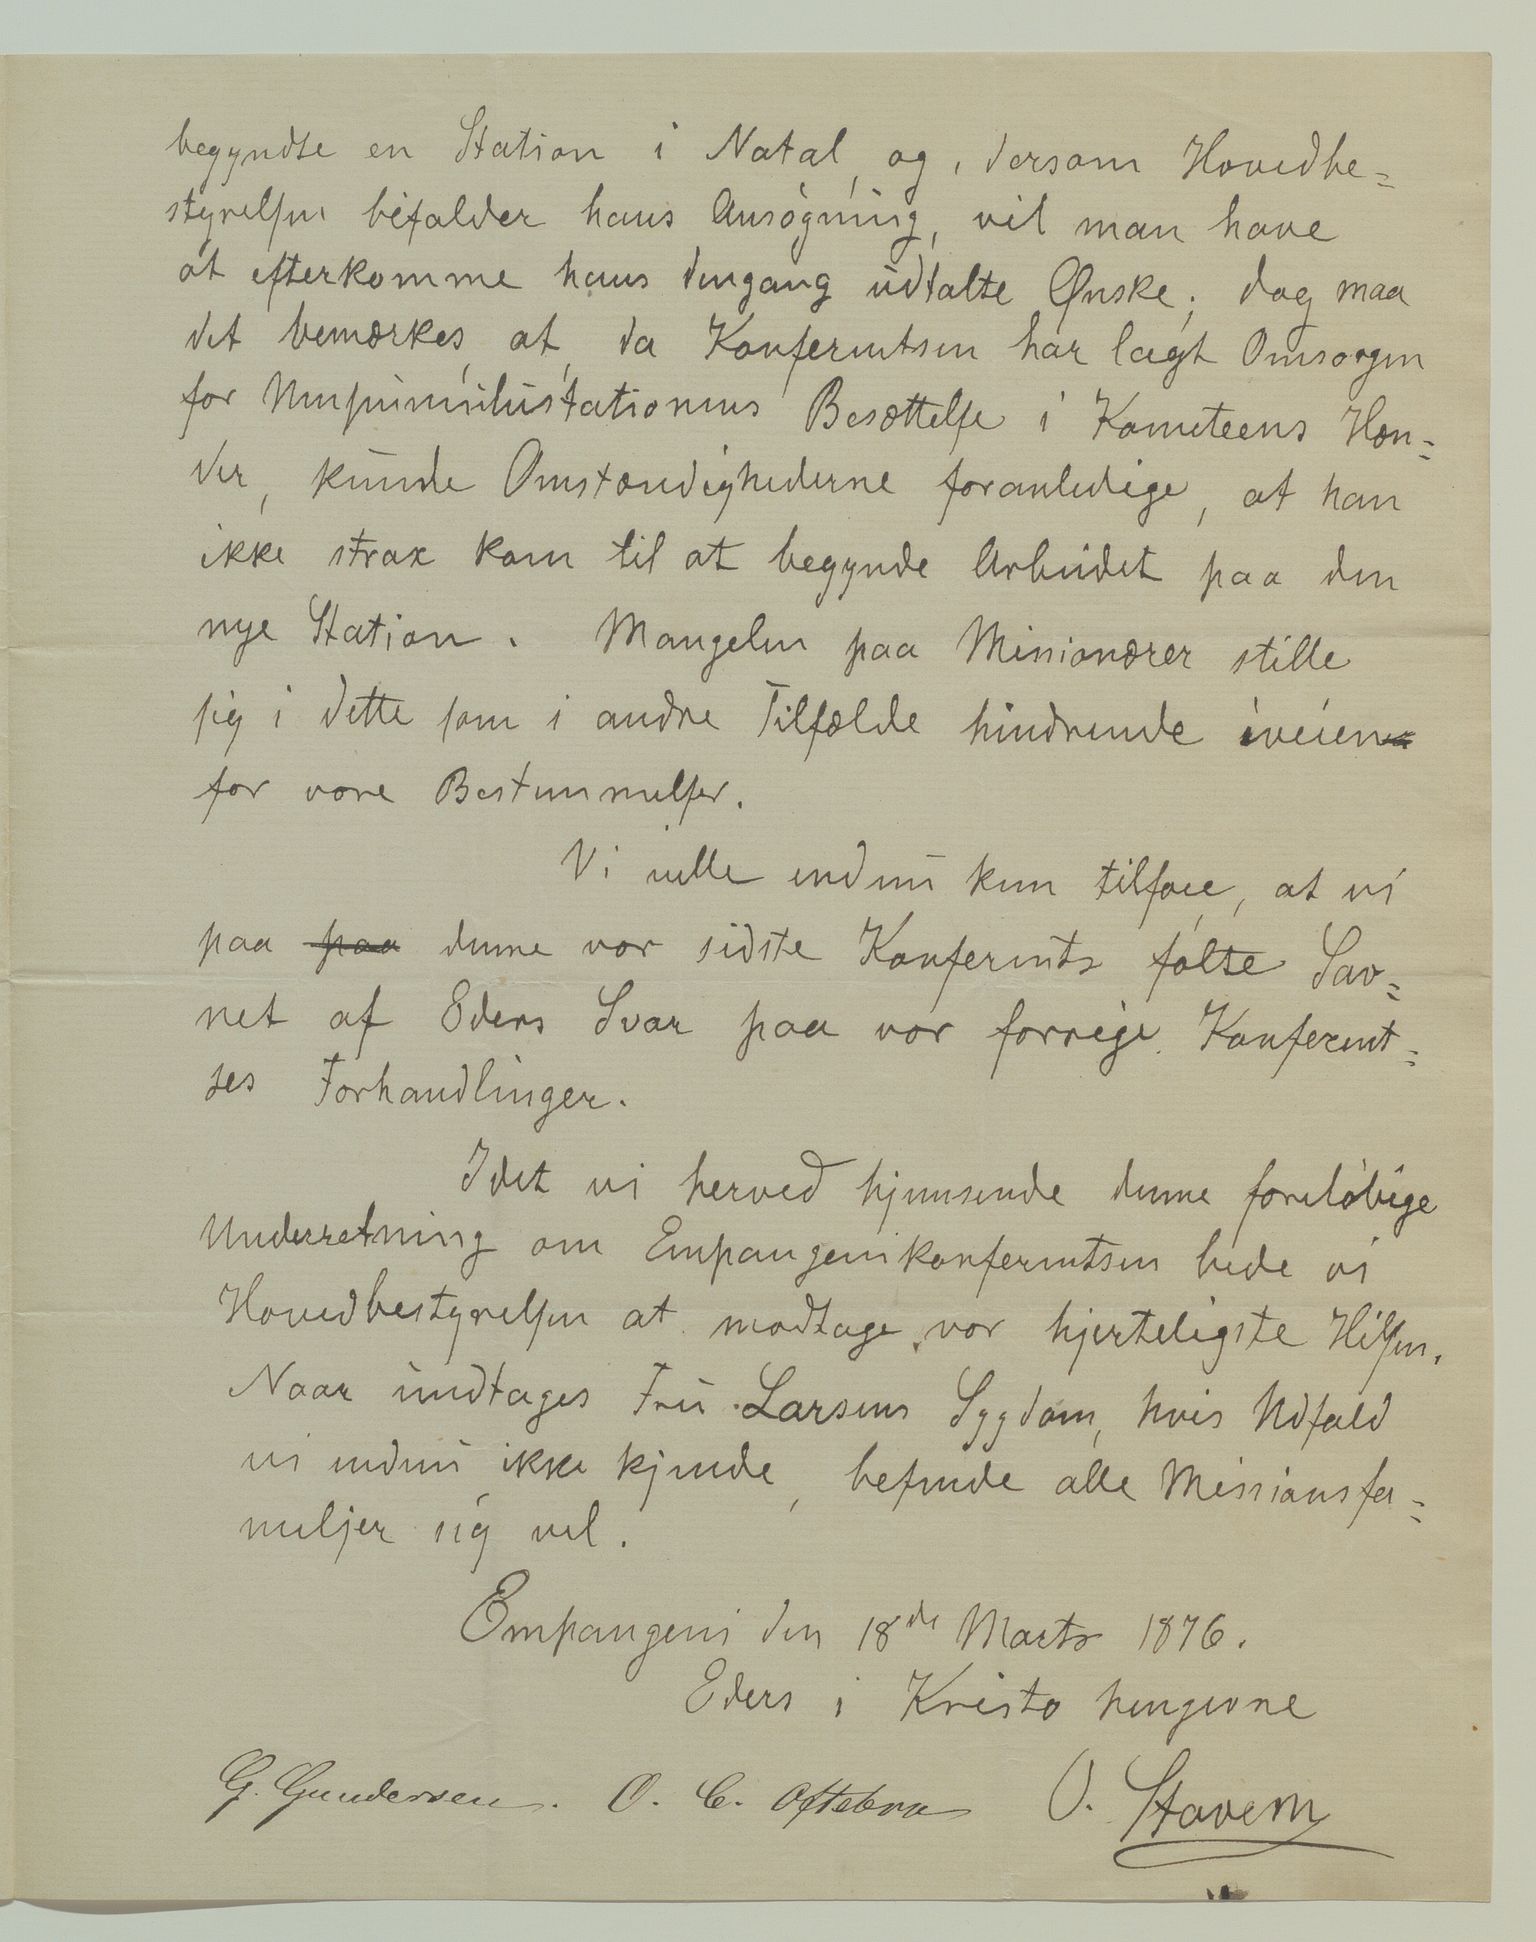 begyndte en Station i Natal, og, dersom Hovedbe=
styrelsen bifalder hans Ansøgning, vil man have
at efterkomme hans dengang udtalte Ønske; dog maa
det bemærkes, at, da Konferentsen har lagt Omsorgen
for Besættelse i Komiteens Hæn=
der, kunde Omstændighederne foranledige, at han
ikke strax kom til at begynde Arbeidet paa den
nye Station. Mangelen paa Missionærer stille
sig i dette som i andre Tilfælde hindrende iveien
for vore Bestemmelser.
Vi ville endnu kun tilføie, at vi
paa paa denne vor sidste Konferents følte Sav=
net af Eders Svar paa vor forrige Konferent=
ses Forhandlinger.
Idet vi herved hjemsende denne foreløbige
Underretning om Empangenikonferentsen bede vi
Hovedbestyrelsen at modtage vor hjerteligste Hilsen.
Naar undtages Fru Larsens Sygdom, hvis Udfald
vi endnu ikke kjende, befinde alle Missionsfa=
miljer sig vel.
Empangeni den 18de Marts 1876.
Eders i Kristo hengivne
G. Gundersen. O. C. Oftebro O. Stavem